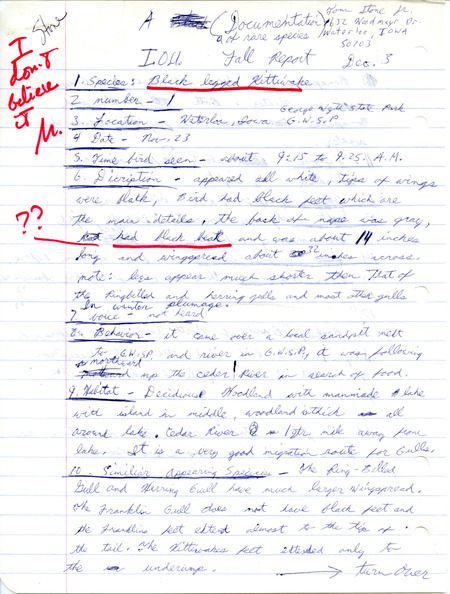 Stone
I
don't
believe
it
M.
A (Documentation)
of rare species
Stone Jr.
1632 Woodmayr Dr.
Waterloo, Iowa
50703
I.O.U. Fall Report Dec. 3
1. Species: Black legged Kittiwake
2. number - 1
George Wyth State Park
3. Location - Waterloo, Iowa G.W.S.P
4 Date - Nov. 23
5. Time bird seen - about 9:15 to 9:25 A.M.
6. Discription - appeared all white, tips of wings
were black, Bird had black feet which are
the main details, the back of nape was gray,
?? had black beak and was about 14 inches
long and wingspread about 32 inches across.
note: legs appear much shorter then that of
the Ringbilled and herring gulls and most other gulls
In winter plumage.
7. voice - not heard
8. Behavior - it came over a local sandpit next
to G.W.S.P. and river in G.W.S.P, it was following
northward up the cedar River in search of food.
9. Habitat - Deciduous Woodland with manmade lake
with island in middle, woodland thick all
around lake. Cedar River 1/4 mile away from
lake. It is a very good migration route for Gulls.
10. Similiar Appearing Species - The Ring-Billed
Gull and Herring Gull have much larger wingspread.
The Franklin Gull does not have black feet and
the Franklins feet extend almost to the tip of
the tail. The Kittiwakes feet extended only to
the underrump.
→ turn over